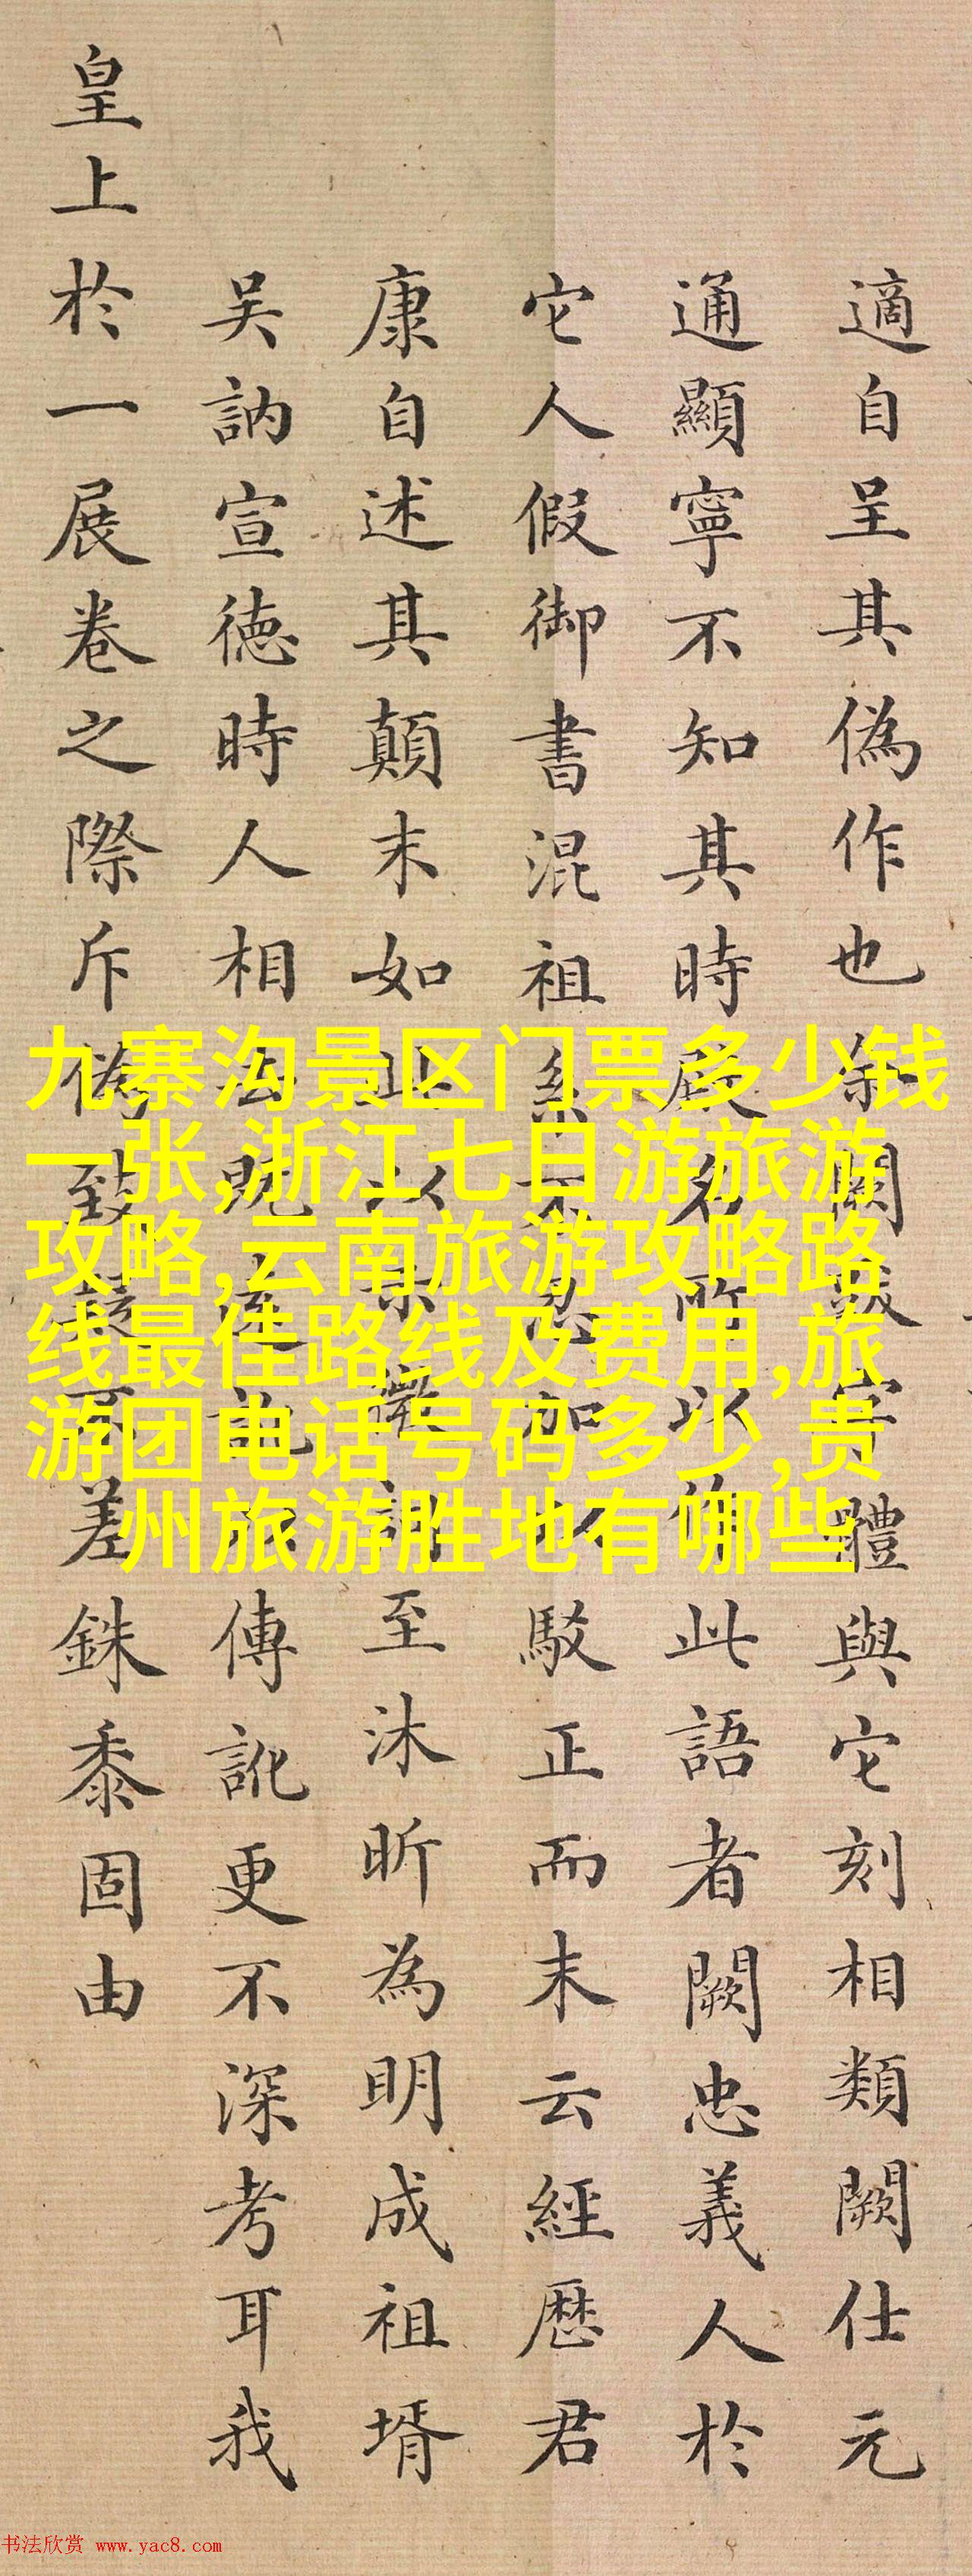 適自呈其偽作也余閱字體與它刻相類闕仕元
通顯寧不知其時名所以作此語者闕忠義人於
它人假御書混祖系不忍加以駁正而末云經歷君
康自述其顛末如此以求徵詞至沐昕為明成祖壻
吳訥宣德時人相去既近傳訛更不深考耳我
皇上於一展卷之際斥偽致疑不差銖黍固由
九寨沟景区门票多少钱
一张,浙江七日游旅游
攻略,云南旅游攻略路
线最佳路线及费用,旅
游团电话号码多少,贵
州旅游胜地有哪些
书法欣赏 www.yac8.com